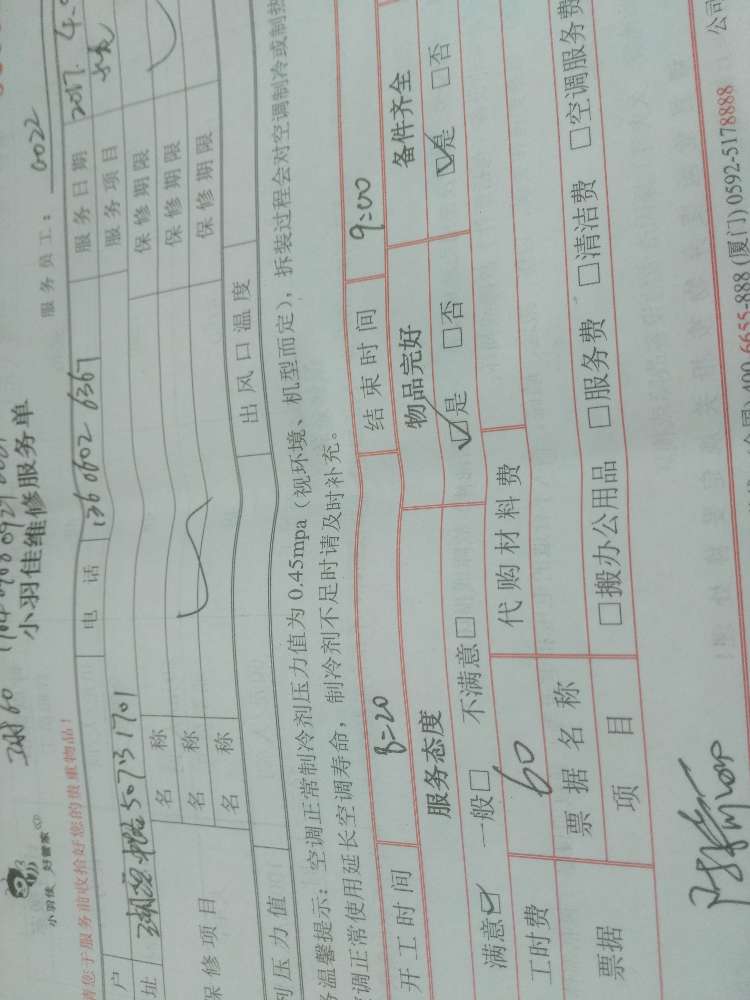 小羽佳 好管家
小羽佳维修服务单
服务员工： 0022
请您于服务前收拾好您的贵重物品！
户
电 话 136 0602 6367
服务日期 2017. 4.
址
1701
服务项目
名 称
保修期限
保修项目
名 称
保修期限
名 称
保修期限
剂压力值
出风口温度
务温馨提示：空调正常制冷剂压力值为 0.45mpa（视环境、机型而定），拆装过程会对空调制冷或制热
空调正常使用延长空调寿命，制冷剂不足时请及时补充。
开工时间 8=20 结束时间 9=00
服务态度 物品完好 备件齐全
满意☑ 一般□ 不满意□ ☑是 □否 ☑是 □否
工时费 60 代购材料费
票据 票据名称
项 目 □搬办公用品 □服务费 □清洁费 □空调服务费
公司
400-6655-888 (厦门) 0592-5178888